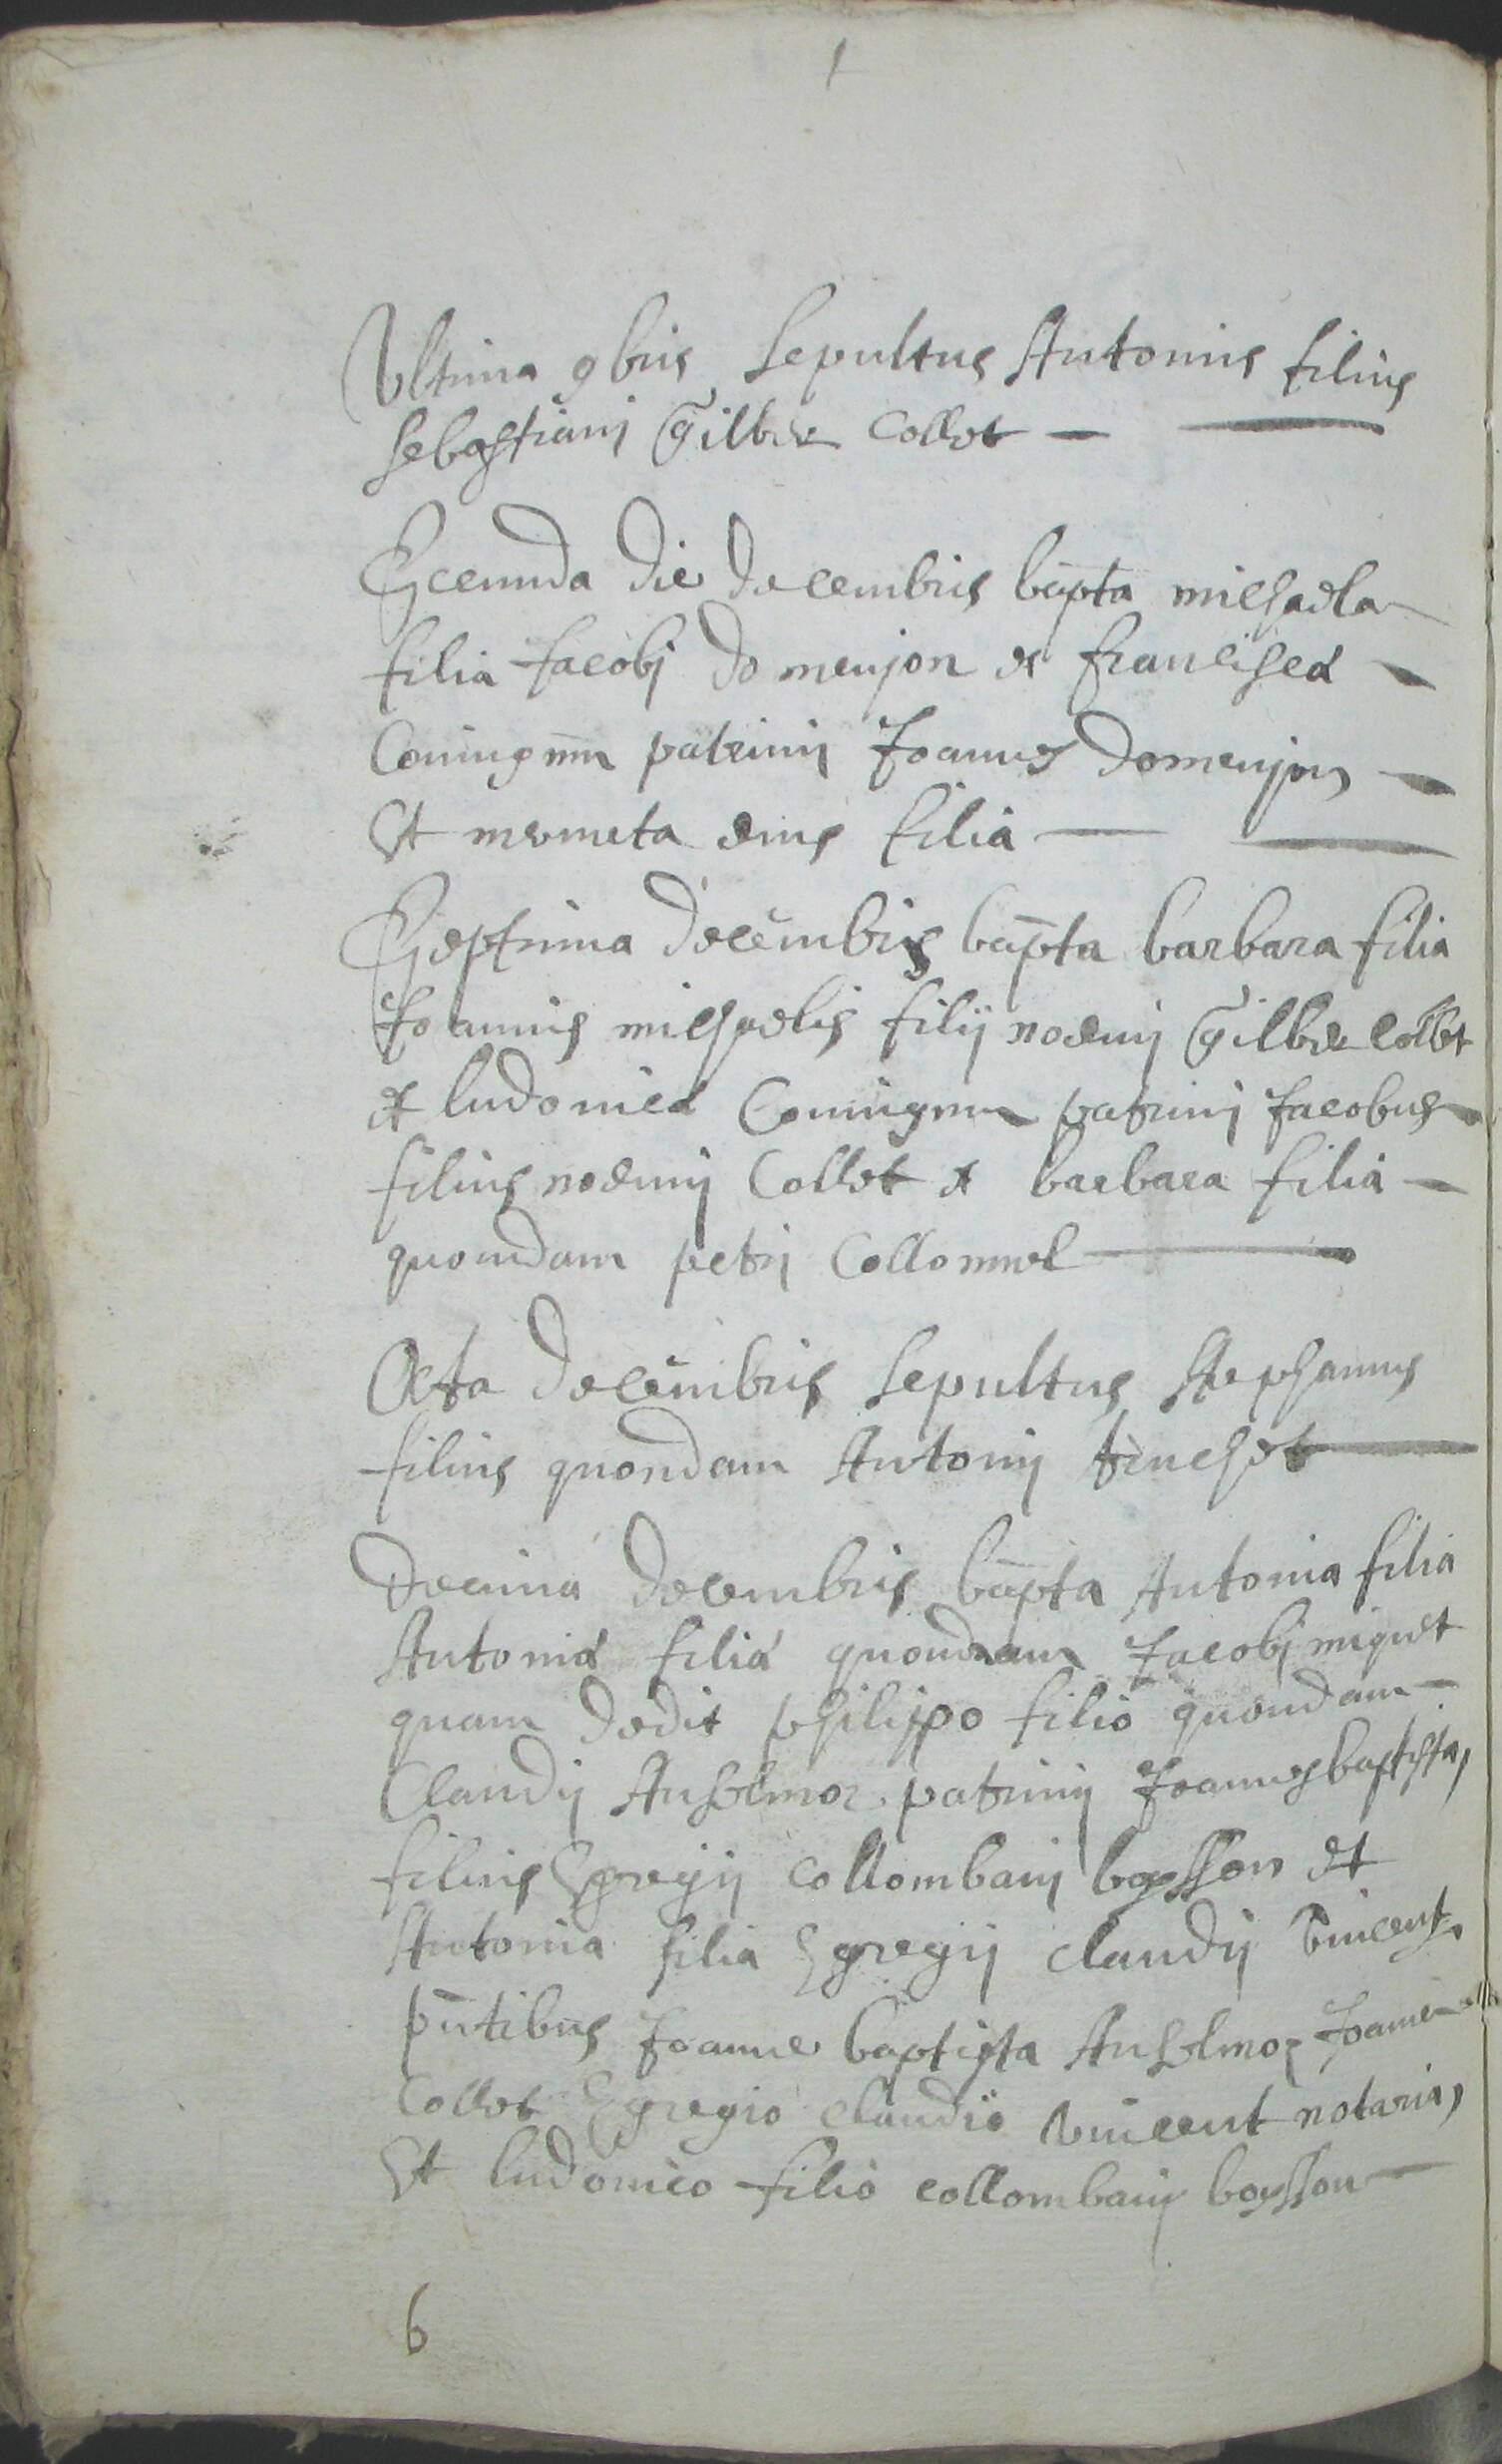 Ultima 9bris sepultus Antonius filius
sebastiani Gilbert Collet
Secunda die decembris bapta michaela
filia Jacobj domenjon et francisca
Coniugum patrinij Joannes domenjon
Et mermeta eius filia
Septima decembris bapta barbara filia
Joannis michaelis filij noemij Gilbert Collet
et ludovica Coniugum patrinj Jacobus
filius noemij Collet et barbara filia
quondam petrj Collomvel
Octa decembris sepultus stephanus
filius quondam Antonij truchet
Decima decembris bapta Antonia filia
Antonia filia quondam Jacobj miquet
quam dedit philippo filio quondam
Claudij Anselmoz patrinij Joannesbaptista,
filius Egregij collombanj boysson et
Antonia filia Egregij claudij vincent
pntibus Joanne baptista Anselmoz Joanne
Collet Egregio claudio vincent notario,
Et ludovico filio collombanj boysson
6